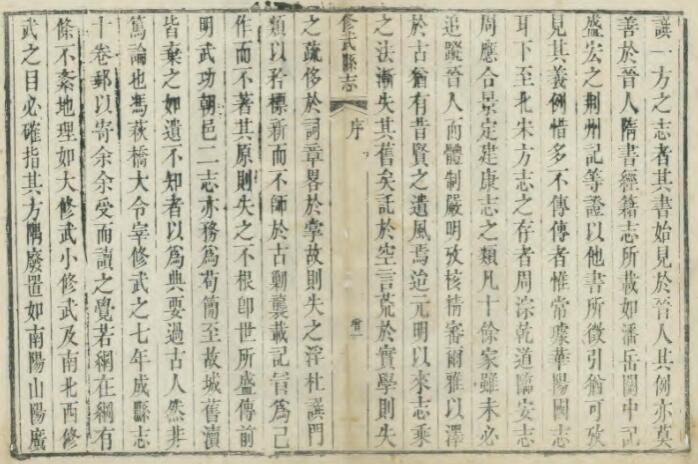 譔一方之志者其書始見於晉人其例亦莫
善於晉人隋書經籍志所載如潘岳關中記
盛宏之荆州記等證以他書所徵引猶可攷
見其義例惜多不傳傳者惟常璩華陽國志
耳下至北宋方志之存者周淙乾道臨安志
周應合景定建康志之類凡十餘家雖未必
追蹤晉人而體制嚴明攷核精審爾雅以澤
於古猶有昔賢之遺風焉迨元明以來志乘
之法漸失其舊矣託於空言荒於實學則失
修武縣志
序
首一
之疏侈於詞章畧於掌故則失之浮杜譔門
類以矜標新而不師於古剿襲載記旨爲己
作而不著其原則失之不根卽世所盛傳前
明武功朝邑二志亦務爲苟簡至故城舊瀆
皆棄之如遺不知者以爲典要過古人然非
篤論也馮萩橋大令宰修武之七年成縣志
十卷郵以寄余余受而讀之覺若網在綱有
條不紊地理如大修武小修武及南北西修
武之目必確指其方隅廢置如南陽山陽廣